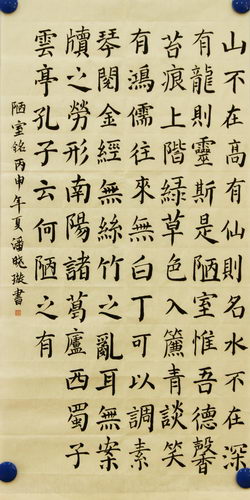 山不在高有仙則名水不在深
有龍則靈斯是陋室惟吾德馨
苔痕上階緑草色入簾青談笑
有鴻儒往來無白丁可以調素
琴閱金經無絲竹之亂耳無案
牘之勞形南陽諸葛廬西蜀子
雲亭孔子云何陋之有
陋室銘丙申年夏潘晓璇書